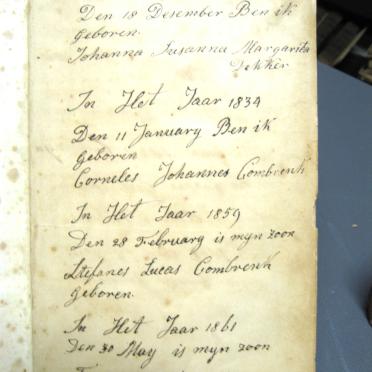 Den 18 Desember Ben ik
geboren.
Johanna Susanna Margarita
Dekker
In Het Jaar 1834
Den 11 January Ben ik
geboren
Corneles Johannes Combrenk
In Het Jaar 1859
Den 28 February is myn zoon
Stefanes Lucas Combrenk
geboren.
In Het Jaar 1861
Den 30 May is myn zoon